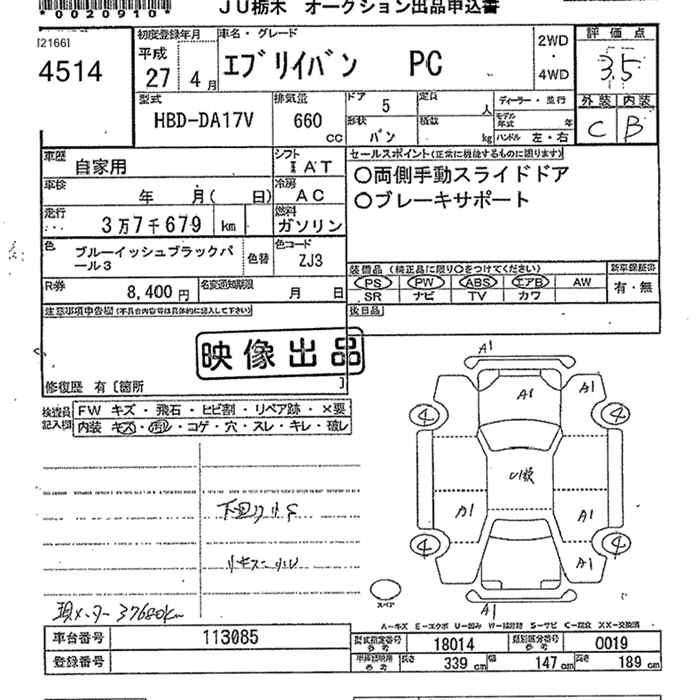 *0020910*
JU栃木 オークション出品申込書
[21661
4514
初度登録年月
平成
27 4月
車名・グレード
エブリイバン PC
2WD
・
4WD
評価点
3.5
外装 内装
C B
型式
HBD-DA17V
排気量
660
cc
ドア 5
定員 人
形状
バン
積載 kg
ディーラー・並行
モデル年式 年
ハンドル 左・右
車歴
自家用
シフト
I AT
セールスポイント(正常に機能するものに限ります)
○両側手動スライドドア
○ブレーキサポート
車検
年 月( 日)
冷房
AC
走行
3万7千679 km
燃料
ガソリン
色
ブルーイッシュブラックパール3
色替
色コード
ZJ3
装備品(純正品に限り○をつけてください)
PS PW ABS エアB AW
SR ナビ TV カワ
新車保証書
有・無
R券
8,400円
名変通知期限
月 日
注意事項申告欄(不具合内容等は具体的に記入して下さい)
後日品
映像出品
修復歴 有〔箇所 〕
検査員記入欄
FW キズ・飛石・ヒビ割・リペア跡・×要
内装 キズ・汚レ・コゲ・穴・スレ・キレ・破レ
A1
A1
A1
A1
4
4
U1数
A1
A1
4
4
A1
A1
スペア
下回りサビ
現メーター37680km
A-キズ E-エクボ U-凹み W-補修跡 S-サビ C-腐食 XX-交換済
車台番号
113085
登録番号
型式指定番号
参考
18014
類別区分番号
参考
0019
車検証用
参考
長さ 339cm
幅 147cm
高さ 189cm